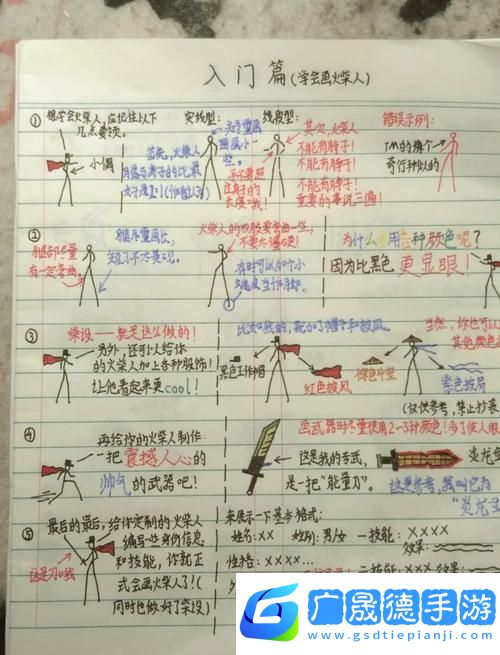 入门篇(学会画火柴人)
① 想学会火柴人,应记住以下
几点要领。
小偶
首先,火柴人
实线型:
线段型:
其次,火柴人
不能有脖子!
不能有脖子!
不能有脖子!
重要的事说三遍!
手不要超
过身子的
长度哦!
错误示例:
TM的像个
奇行种似的
②
腿部尽量
有一定弯曲。
腿尽量画长,
短了不太美观。
火柴人的四肢要弯曲一些,
不要太僵硬!
有时可以加个小
当作脚。
为什么要用这种颜色呢?
因为比黑色更显眼!
③ 柴设——就是这么做的!
另外,还可以给你
的火柴人加上各种服饰!
让他看起来更cool!
比如我的,就加了帽子和披风。
黑色工作帽
红色披风
当然,你也可以
其他颜色
棕色斗笠
紫色披肩
(仅供参考,禁止抄袭
④ 再给你的火柴人制作
一把震撼人心的
帅气的武器吧!
画武器时尽量使用2~3种颜色!多了像人眼
这是我的专武,
是一把“能量刀”。
炎龙剑
这是参考,我叫它为
“炎龙宝
⑤ 最后的最后,给你定制的火柴人
编写一些身份信息
和技能,你就正
式会画火柴人了!(
同时也做好了柴设)
这是刀哦
来展示一下基本格式:
姓名:×× 性别:男/女 一技能:××××
效果:
性格:×××…
二技能:××××
效果:
广晟德手游
www.gsdtiepianji.com